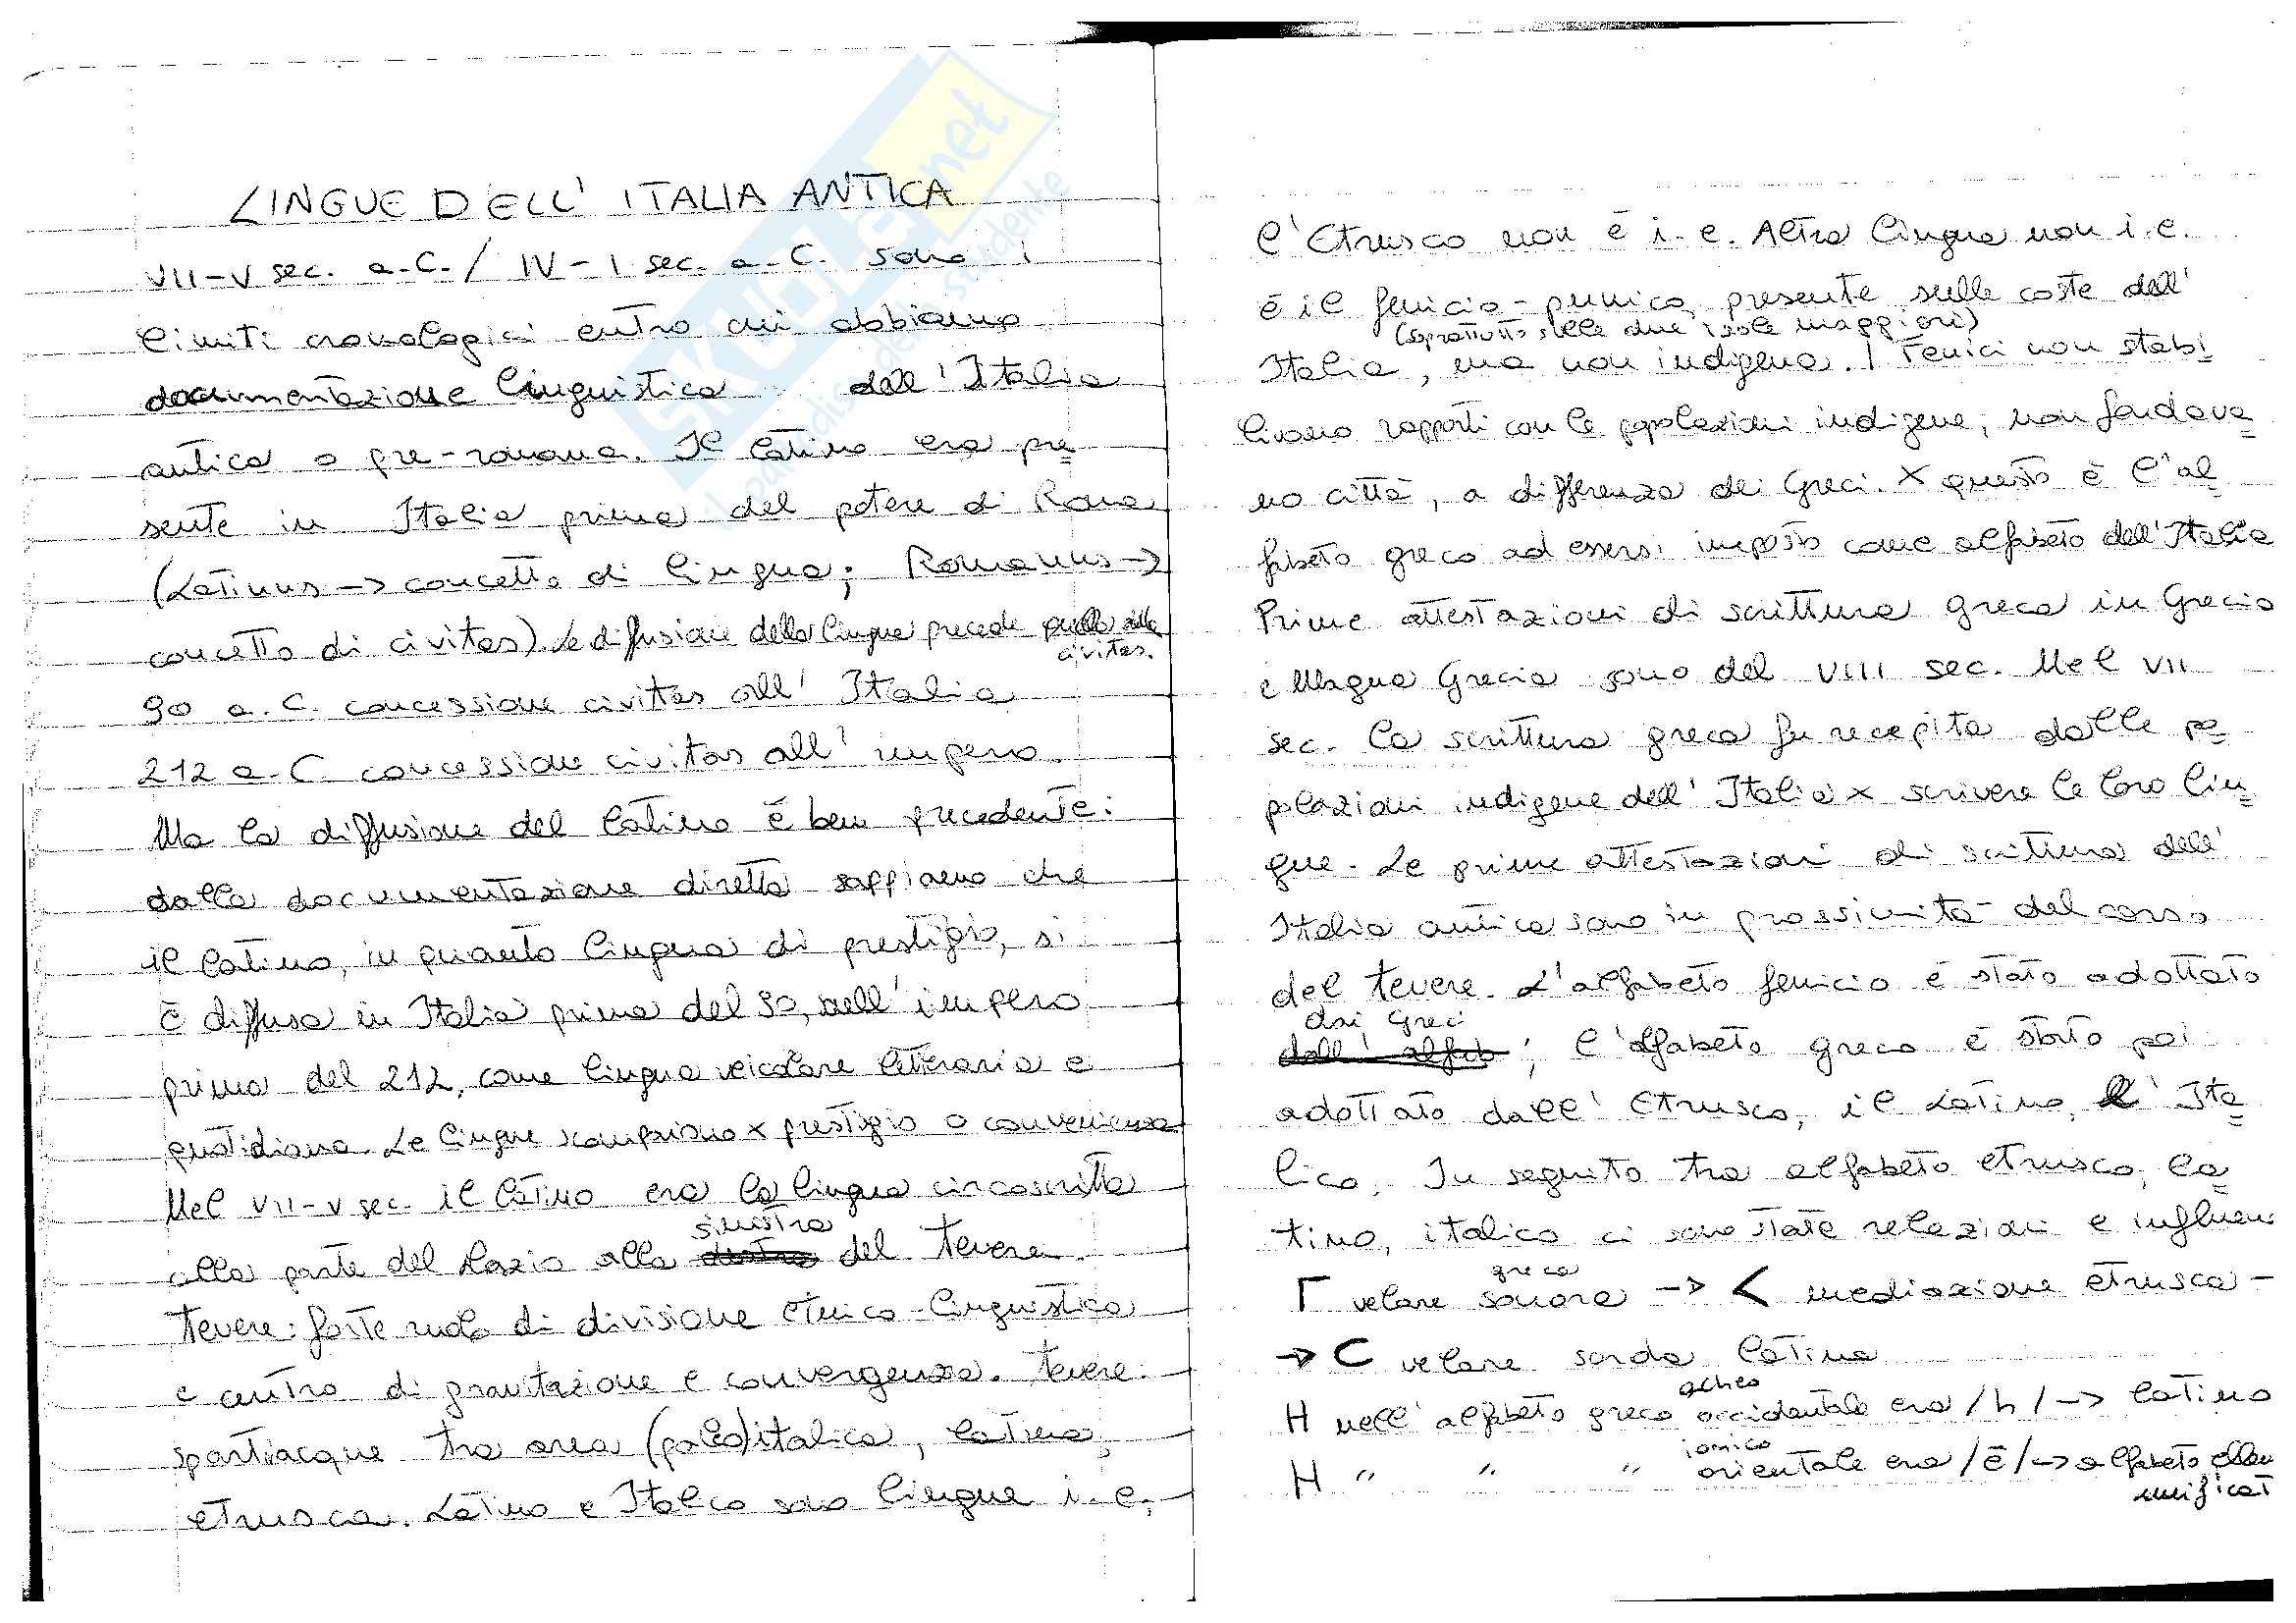 LINGUE DELL' ITALIA ANTICA
VII-V sec. a.C. / IV-I sec. a.C. sono i
limiti cronologici entro cui abbiamo
documentazione linguistica dell'Italia
antica o pre-romana. Il latino era pre
sente in Italia prima del potere di Roma
(Latinus -> concetto di lingua; Romanus ->
concetto di civitas). La diffusione della lingua precede quella della
civitas.
90 a.C. concessione civitas all' Italia
212 a.C. concessione civitas all' impero.
Ma la diffusione del latino è ben precedente:
dalla documentazione diretta sappiamo che
il latino, in quanto lingua di prestigio, si
è diffuso in Italia prima del 90, nell'impero
prima del 212, come lingua veicolare letteraria e
quotidiana. Le lingue scompaiono x prestigio o convenienza
Nel VII-V sec. il latino era la lingua circoscritta
sinistra
alla parte del Lazio alla del Tevere.
Tevere: forte ruolo di divisione etnico-linguistica
e centro di gravitazione e convergenza. Tevere:
spartiacque tra area (paleo)italica, latina,
etrusca. Latino e Italico sono lingue i.e.,
l'Etrusco non è i.e. Altra lingua non i.e.
è il fenicio-punico, presente sulle coste dell'
(soprattutto nelle due isole maggiori)
Italia, ma non indigena. I Fenici non stabi
livano rapporti con le popolazioni indigene; non fondava
no città, a differenza dei Greci. X questo è l'al
fabeto greco ad essersi imposto come alfabeto dell'Italia
Prime attestazioni di scrittura greca in Grecia
e Magna Grecia sono del VIII sec. Nel VII
sec. la scrittura greca fu recepita dalle po
polazioni indigene dell' Italia x scrivere le loro lin
gue. Le prime attestazioni di scrittura dell'
Italia antica sono in prossimità del corso
del Tevere. L'alfabeto fenicio è stato adottato
dai Greci
dall' alfab ; l'alfabeto greco è stato poi
adottato dall' Etrusco, il Latino, l' Ita
lico. In seguito tra alfabeto etrusco, la
tino, italico ci sono state relazioni e influen
greca
Γ velare sonora -> < mediazione etrusca -
-> C velare sorda latina
acheo
H nell' alfabeto greco occidentale era /h/ -> latino
ionico
H " " " orientale era /ē/ -> alfabeto
unificat